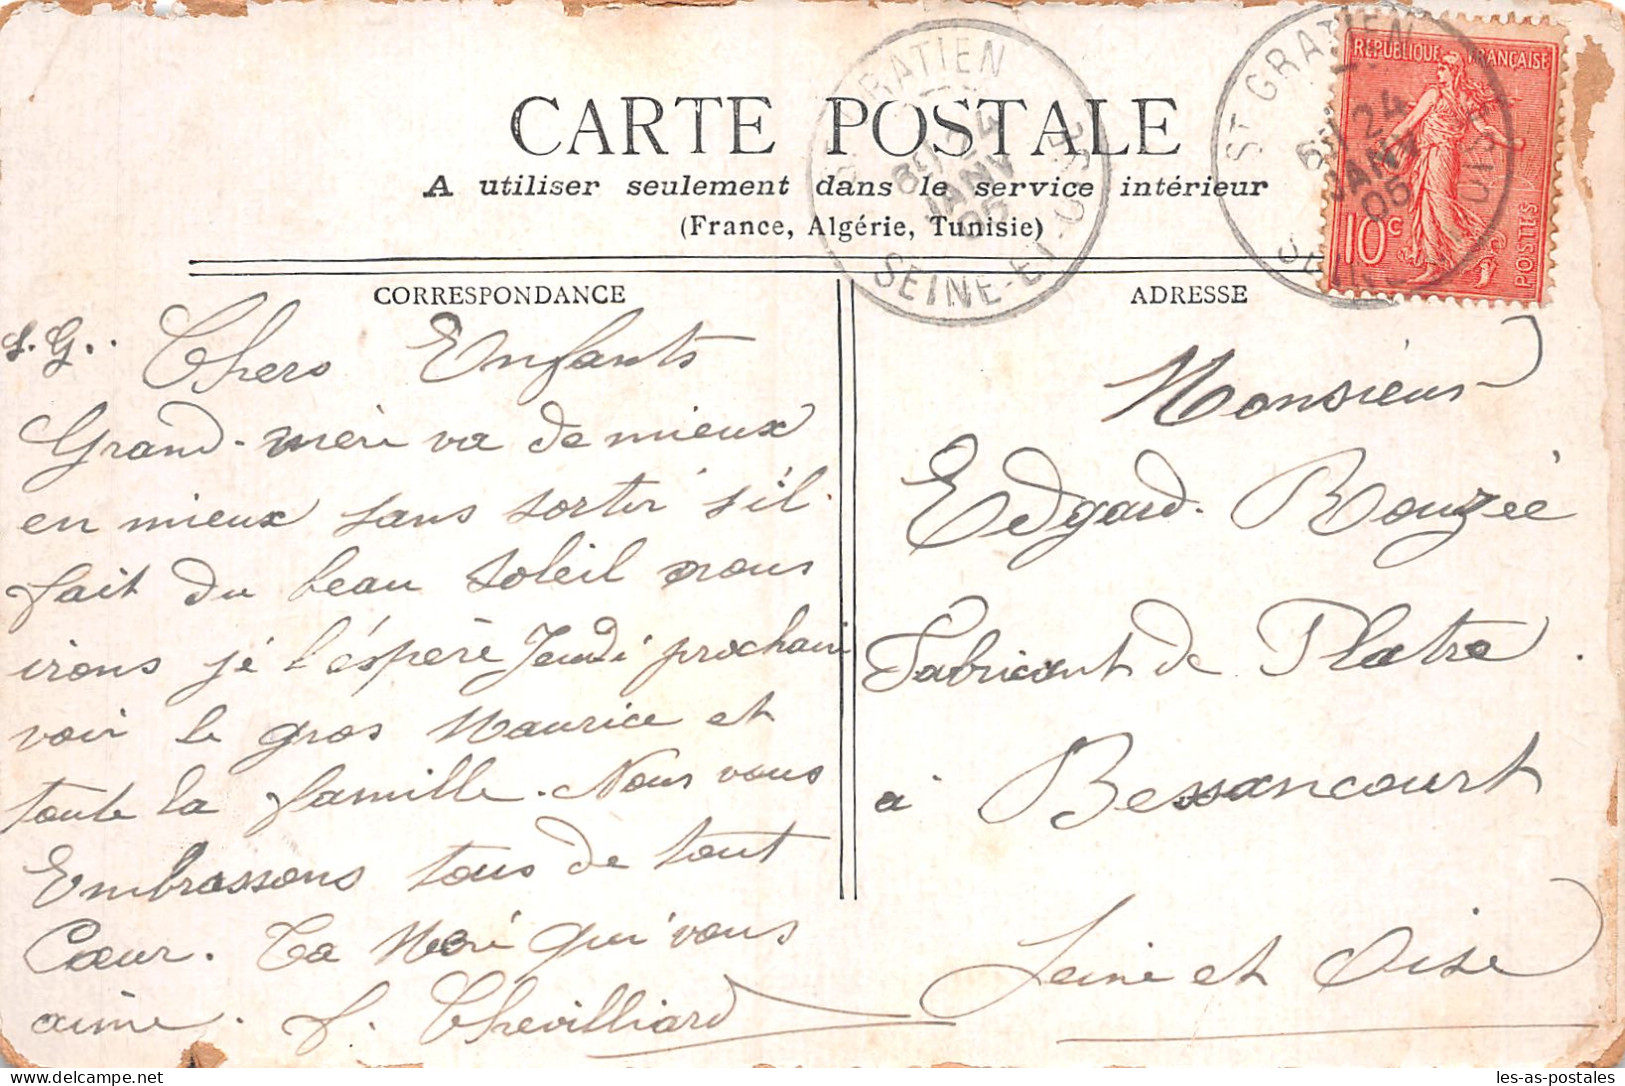 CARTE POSTALE
A utiliser seulement dans le service intérieur
(France, Algérie, Tunisie)
CORRESPONDANCE
S. G..
Chers Enfants
Grand-mère va de mieux
en mieux sans sortir s'il
fait du beau soleil nous
irons je l'éspère Jeudi prochain
voir le gros Maurice et
toute la famille. Nous vous
Embrassons tous de tout
Cœur. Ta Mère qui vous
aime. f. Chevilliard
ADRESSE
Monsieur
Edgard Rouzée
Fabricant de Platre.
à Bessancourt
Seine et Oise
ST GRATIEN
24
JANV
05
SEINE-ET-OISE
ST GRATIEN
6E 24
JANV
05
SEINE
REPUBLIQUE FRANÇAISE
10c
POSTES
les-as-postales